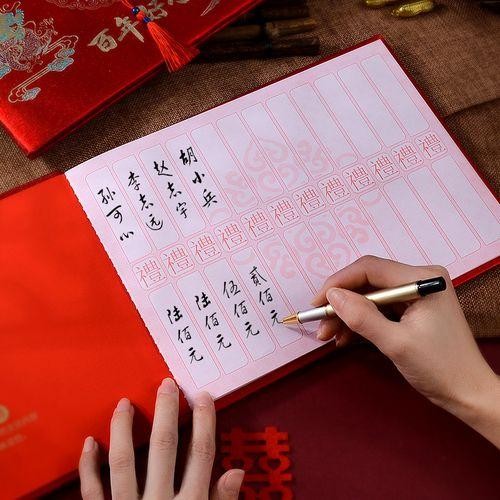 百年好合
孙可心
李志远
赵志宇
胡小兵
禮禮禮禮禮禮禮禮禮禮禮禮
陆佰元
陆佰元
伍佰元
贰佰元
囍